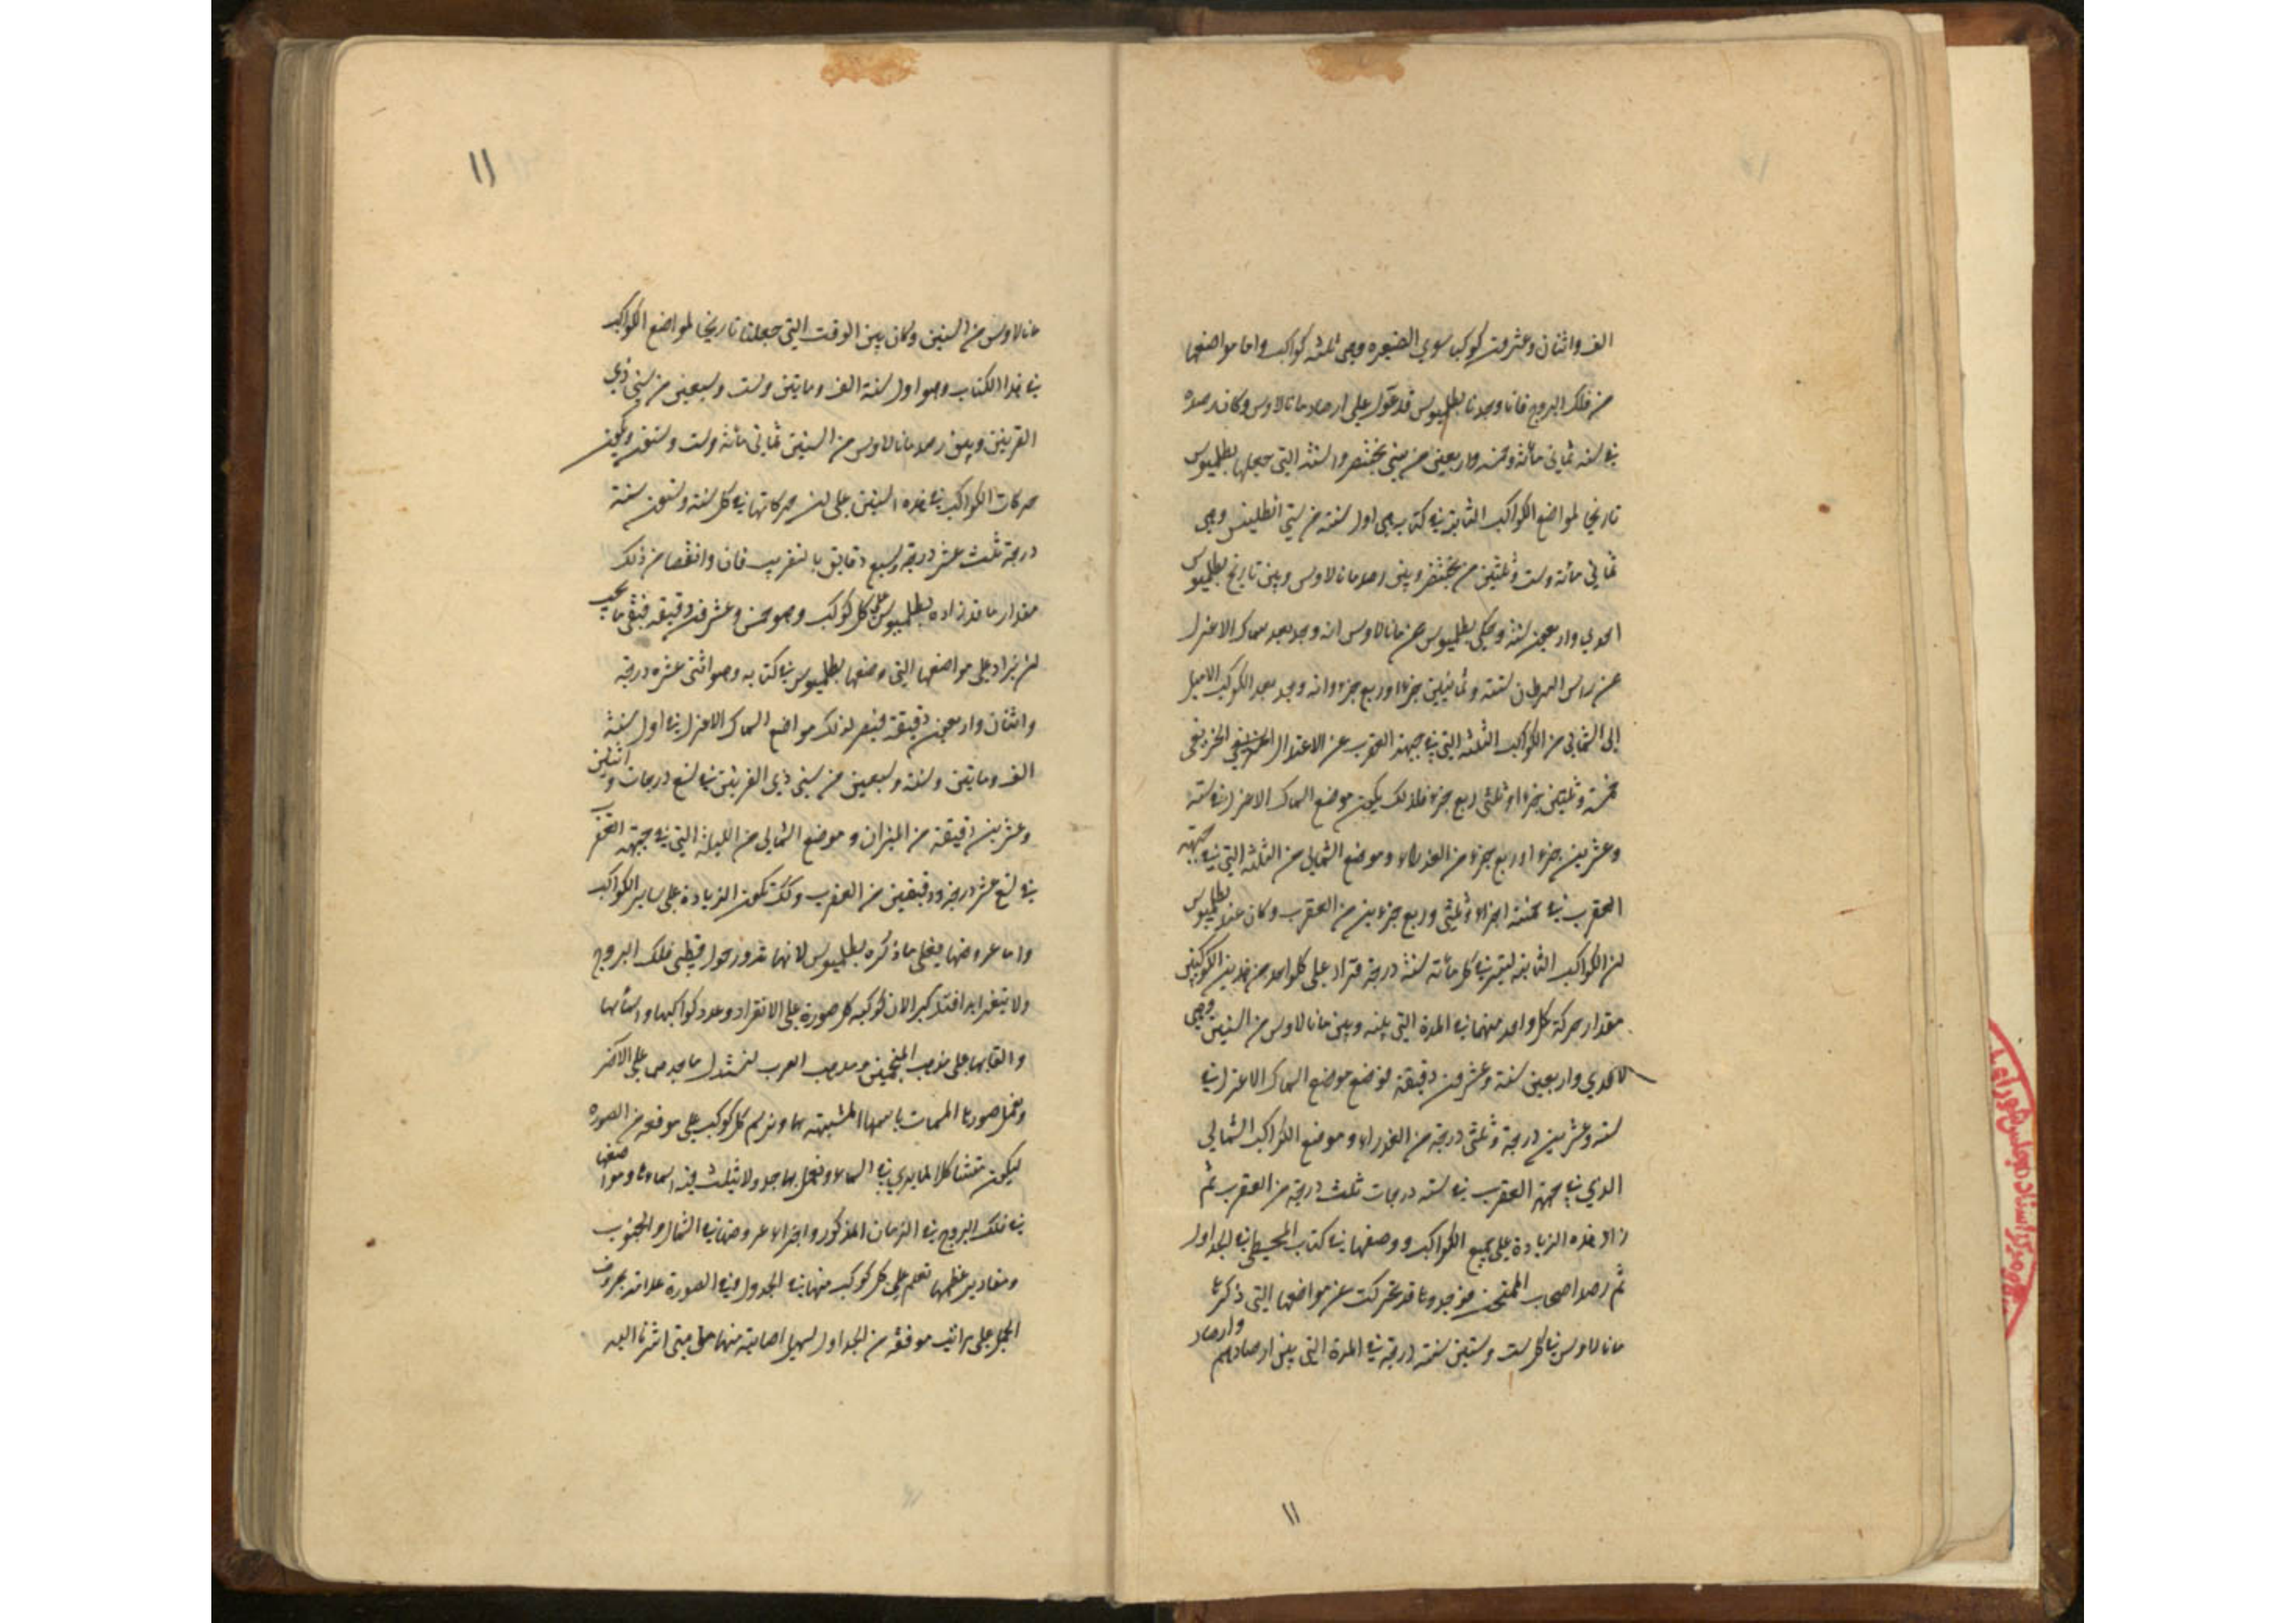 الف واثنان وعشرون كوكبا سوي الضفيره وهي ثلثه كواكب واما مواضعها
من فلك البروج فانا وجدنا بطلميوس قد عوّل على ارصاد مانالاوس وكان رصده
في سنه ثماني مائة وخمسه واربعين من سني بختنصر والسنة التي جعلها بطلميوس
تاريخا لمواضع الكواكب الثابته في كتابه هي اول سنته من سني انطلينس وهي
ثماني مائة وست وثلثين من بختنصر وبين رصد مانالاوس وبين تاريخ بطلميوس
احدي واربعون سنة وحكي بطلميوس عن مانالاوس انه وجد بعد سماك الاعزل
عن راس السرطان ستة وثمانين جزءا وربع جزء وانه وجد بعد الكوكب الاميل
الى الشمالي من الكواكب الثلثه التي في جبهة العقرب عن الاعتدال الخريفي
خمسة وثلثين جزءا وثلثي وربع جزء فلذلك يكون موضع السماك الاعزل في ستة
وعشرين جزءا وربع جزء من العذراء وموضع الشمالي من الثلثة التي في جبهة
العقرب في خمسة اجزاء وثلثي وربع جزء من العقرب وكان عند بطلميوس
ان الكواكب الثابته تسير في كل مائة سنة درجة فزاد على كل واحد من هذين الكوكبين
مقدار حركة كل واحد منهما في المدة التي بينه وبين مانالاوس من السنين وهي
لاحدي واربعين سنة وعشرون دقيقة فوضع موضع السماك الاعزل في
ستة وعشرين درجة وثلثي درجة من العذراء وموضع الكواكب الشمالي
الذي في جبهة العقرب في ستة درجات ثلث درجة من العقرب ثم
زاد هذه الزيادة على جميع الكواكب ووضعها في كتاب المجسطي في الجداول
ثم رصد اصحاب الممتحن فوجدوها قد تحركت عن مواضعها التي ذكرها
مانالاوس في كل ست وستين سنة درجة في المدة التي بين ارصادهم وارصاد
۱۱
۱۱
مانالاوس من السنين وكان بين الوقت التي جعلنا تاريخا لمواضع الكواكب
في هذا الكتاب وهو اول سنة الف وماتين وست وسبعين من سني ذي
القرنين وبين رصد مانالاوس من السنين ثماني مائة وست وستون ويكون
حركات الكواكب في هذه السنين على ان حركاتها في كل ستة وستون سنة
درجة ثلث عشر درجة وسبع دقايق بالتقريب فان وانقصنا من ذلك
مقدار ما قد زاده بطلميوس على كل كوكب وهو خمس وعشرون دقيقه فبقي ما يجب
ان يزاد على مواضعها التي وضعها بطلميوس في كتابه وهو اثنتي عشره درجة
واثنان واربعون دقيقة فيصير لذلك مواضع السماك الاعزل في اول سنة
الف وماتين وستة وسبعين من سني ذي القرنين في تسع درجات واثنين
وعشرين دقيقة من الميزان وموضع الشمالي من الثلثة التي في جبهة العقرب
في تسع عشر درجة ودقيقتين من العقرب وكذلك تكون الزيادة على ساير الكواكب
واما عروضها فعلى ما ذكره بطلميوس لانها تدور حول قطبي فلك البروج
ولا يتغير ابدا فنذكر الان كوكبه كل صورة على الانفراد وعدد كواكبها واسمائها
والقابها على مذهب المنجمين ومذهب العرب لنستدل ماجدها على الاكثر
ونعمل صورها المسمات باسمها المشبهة بها ونرسم كل كوكب على موقعه من الصوره
ليكون متشاكلا لما يري في السماء ونعمل بها جدولا نثبت فيه اسماءها ومواضعها
في فلك البروج في الزمان المذكور واجزاء عروضها في الشمال والجنوب
ومقادير عظمها نعلم على كل كوكب منها في الجدول وفي الصورة علامة بحروف
الجمل على مراتب موقعه من الجداول ليسهل اصابته منها متى اشرنا اليه